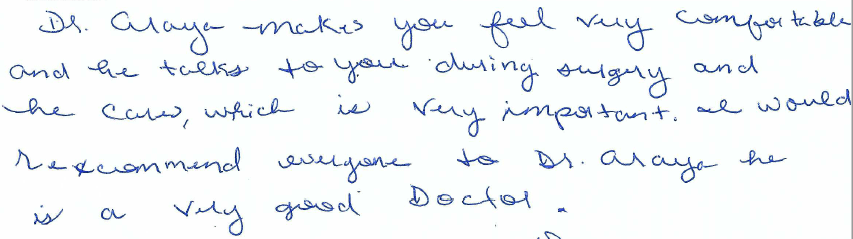 Dr. Araya makes you feel very comfortable
and he talks to you during surgery and
he cares, which is very important. I would
reccommend everyone to Dr. Araya he
is a very good Doctor.